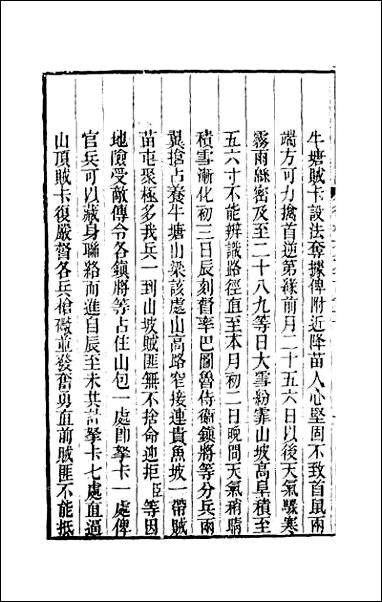 牛塘賊卡設法奪據俾附近降苗人心堅固不致首鼠兩
端方可力擒首逆第緣前月二十五六日以後天氣驟寒
霧雨緜密及至二十八九等日大雪紛霏山坡高阜積至
五六寸不能辨識路徑直至本月初二日晚間天氣稍晴
積雪漸化初三日辰刻督率巴圖魯侍衞鎮將等分兵兩
翼搶占養牛塘山梁該處山高路窄接連貴魚坡一帶賊
苗屯聚極多我兵一到山坡賊匪無不捨命迎拒臣等因
地險受敵傳令各鎮將等占住山包一處卽拏卡一處俾
官兵可以藏身聯絡而進自辰至未共計拏卡七處直逼
山頂賊卡復嚴督各兵槍礮並發奮勇直前賊匪不能抵